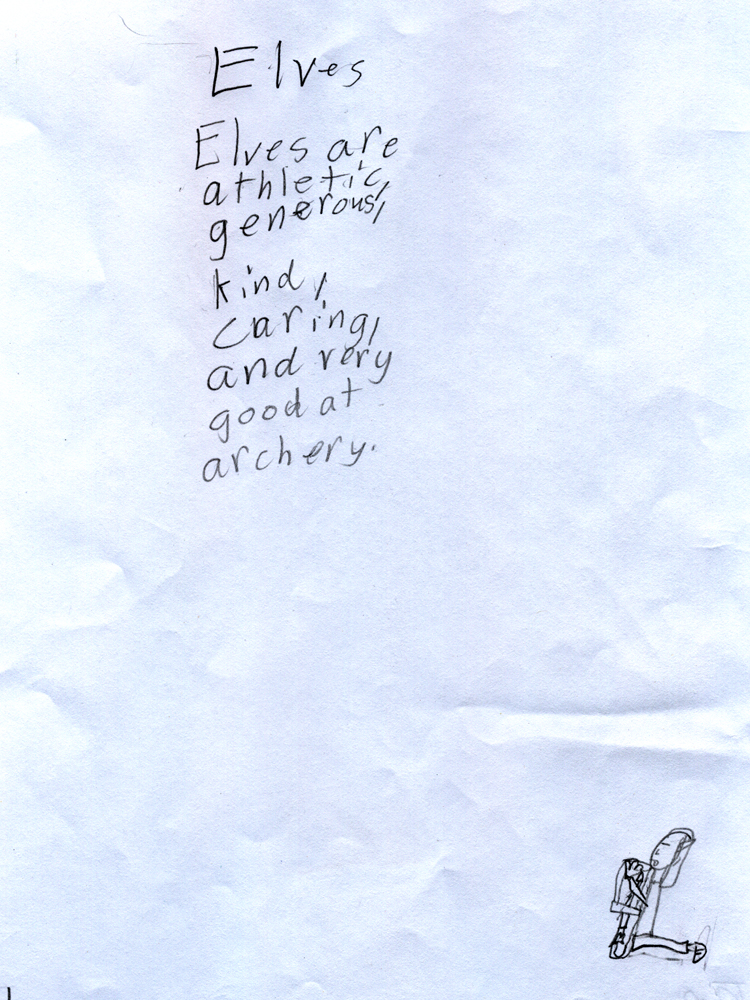 Elves
Elves are
athletic,
generous,
kind,
caring,
and very
good at
archery.